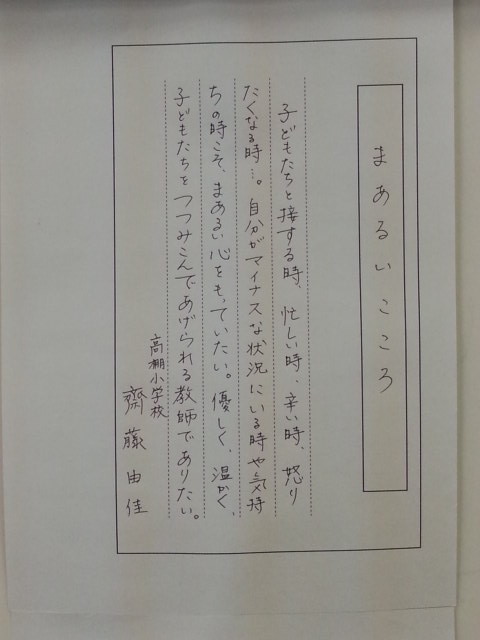 まあるいこころ
子どもたちと接する時、忙しい時、辛い時、怒り
たくなる時…。自分がマイナスな状況にいる時や気持
ちの時こそ、まあるい心をもっていたい。優しく、温かく、
子どもたちをつつみこんであげられる教師でありたい。
高棚小学校
齋藤由佳